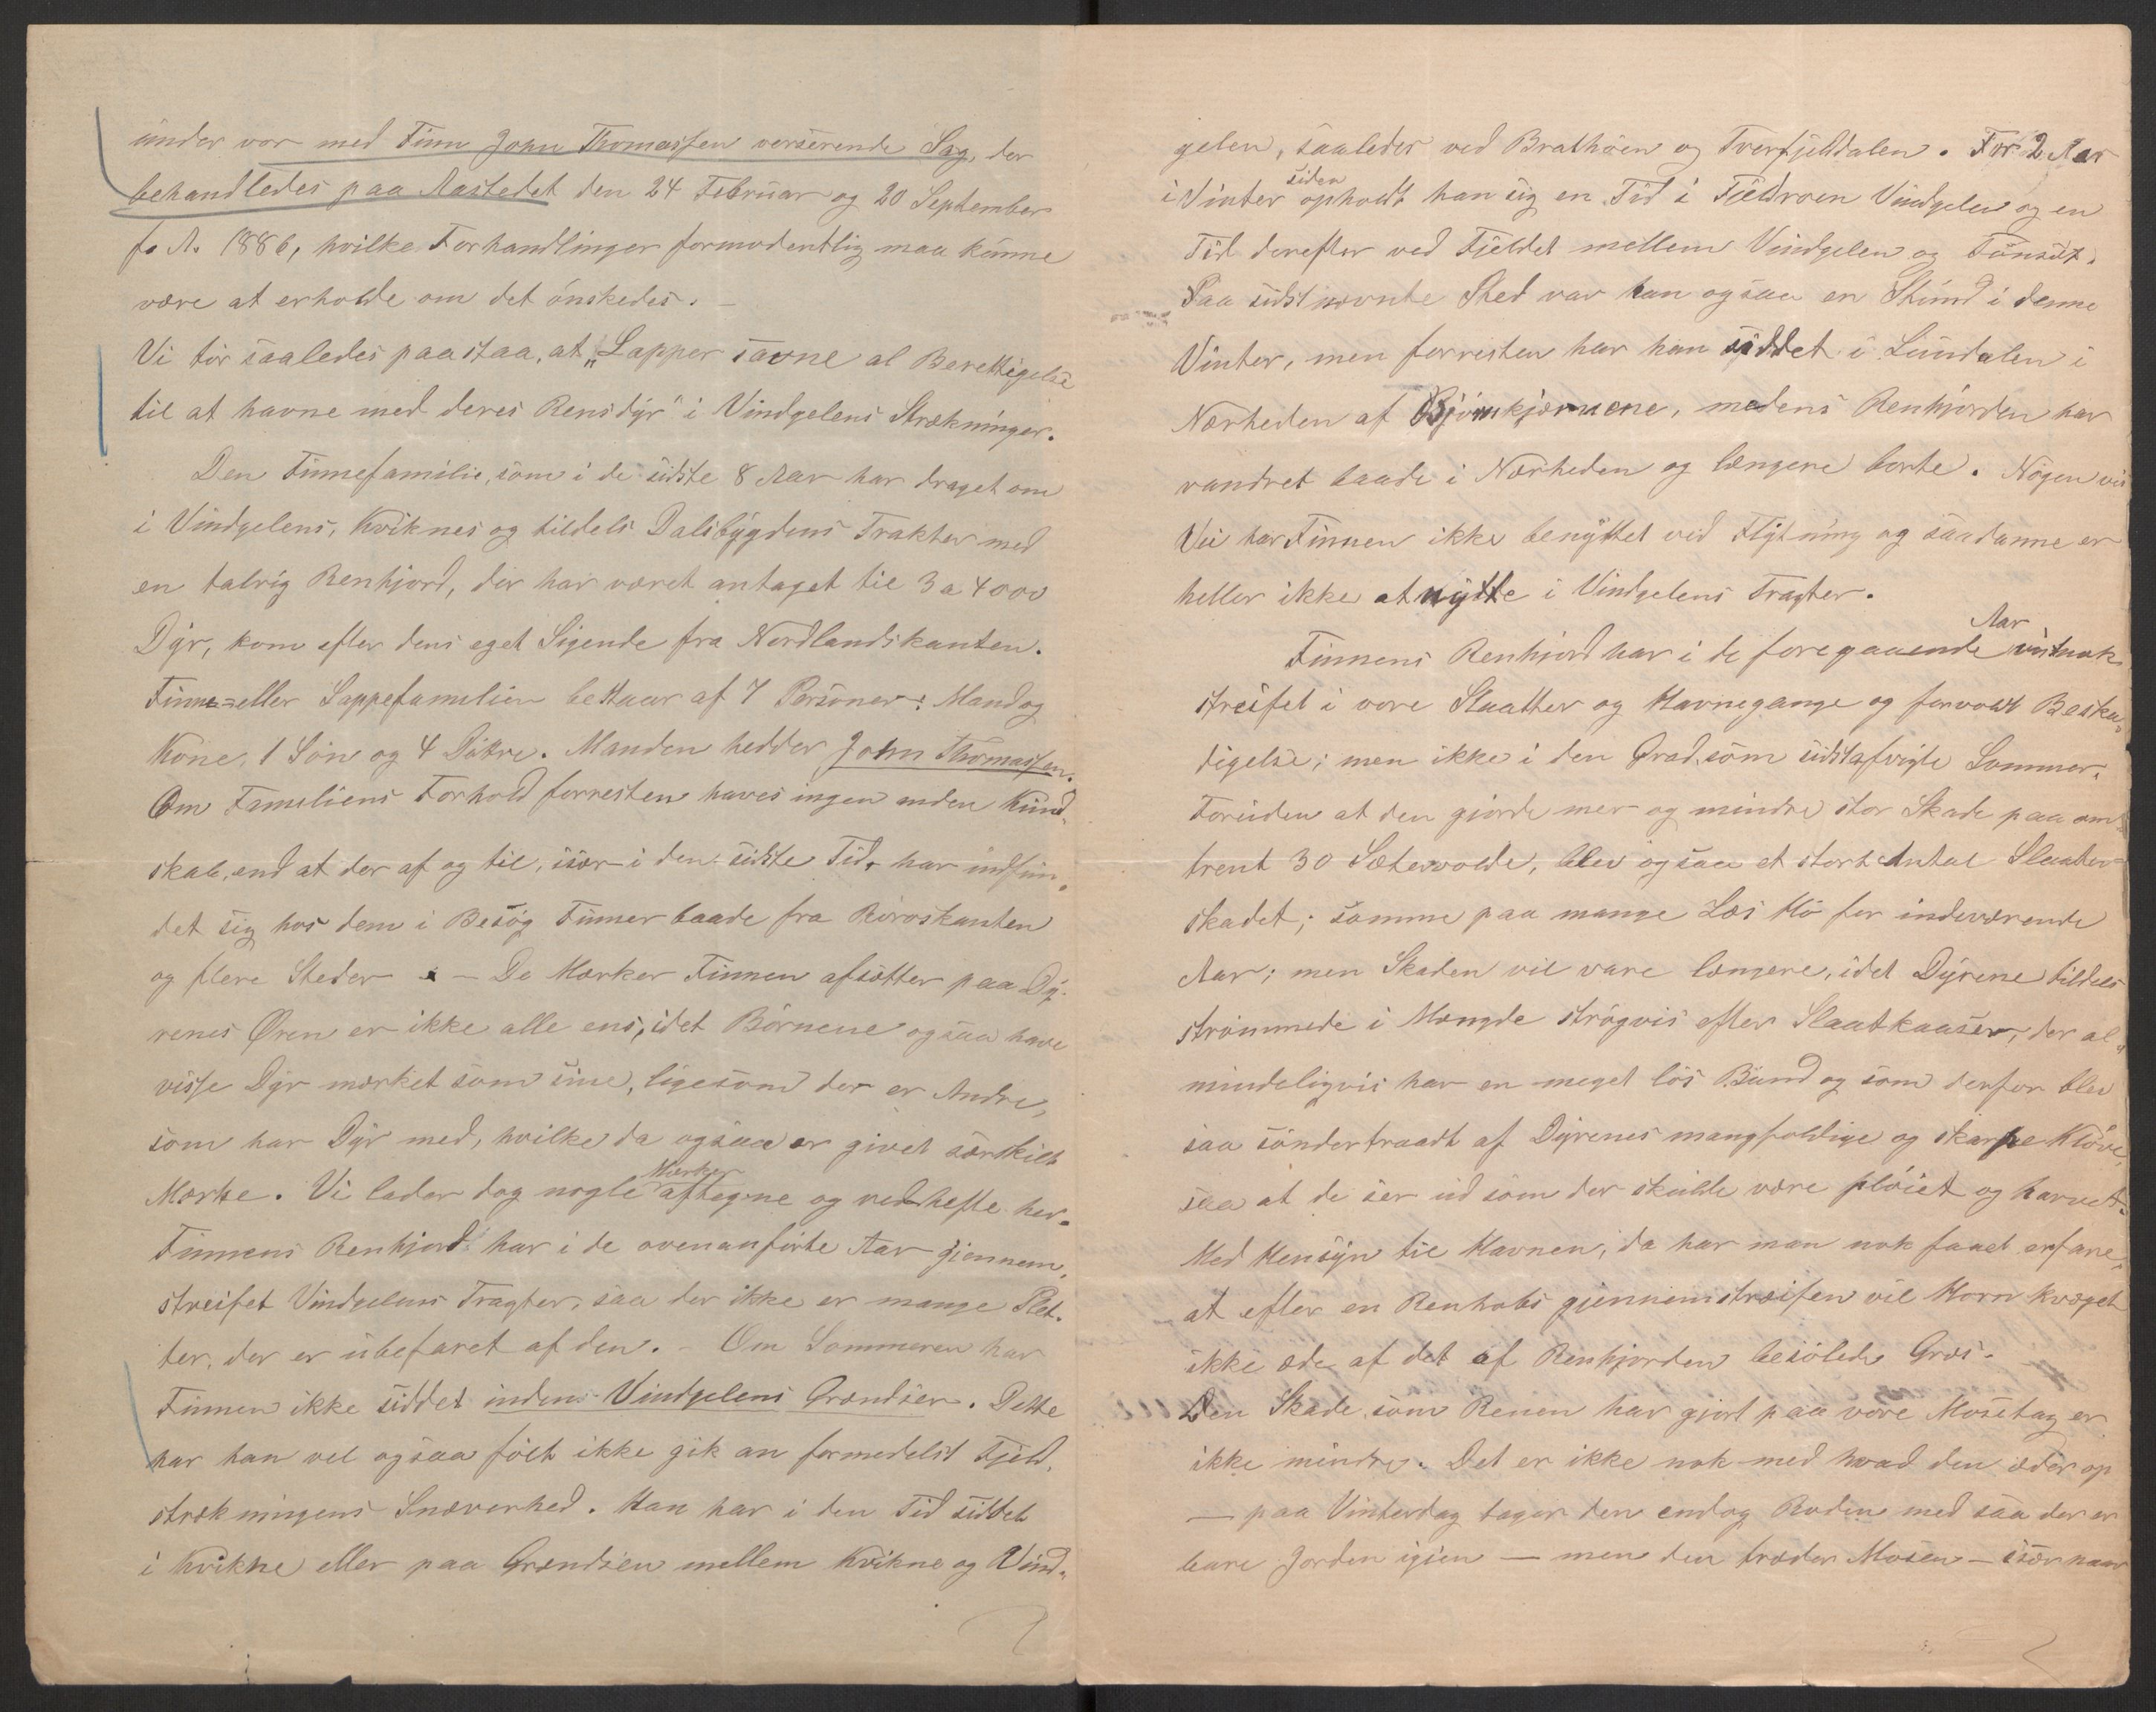 under vor med Finn John Thomassen verserende Sag, der
behandledes paa Aastedet den 24 Februar og 20 September
f. A. 1886, hvilke Forhandlinger formodentlig maa kunne
være at erholde om det ønskedes. –
Vi tør saaledes paastaa, at „Lapper savne al Berettigelse
til at havne med deres Rensdyr" i Vindgelens Strækninger.
Den Finnefamilie, som i de sidste 8 Aar har draget om
i Vindgelens, Kviknes og tildels Dalsbygdens Trakter med
en talrig Renhjord, der har været antaget til 3 a 4000
Dyr, kom efter dens eget Sigende fra Nordlandskanten.
Finne- eller Lappefamilien bestaar af 7 Personer: Mand og
Kone, 1 Søn og 4 Døttre. Manden hedder John Thomassen.
Om Familiens Forhold forresten haves ingen anden Kund-
skab, end at der af og til, især i den sidste Tid, har indfun-
det sig hos dem i Besøg Finner baade fra Røroskanten
og flere Steder – De Mærker Finnen afsætter paa Dy-
renes Øren er ikke alle ens, idet Børnene ogsaa have
visse Dyr mærket som sine, ligesom der er Andre,
som har Dyr med, hvilke da ogsaa er givet særskilt
Mærke. Vi lader dog nogle Mærker aftegne og vedhefte her.
Finnens Renhjord har i de ovenanførte Aar gjennem-
streifet Vindgelens Tragter, saa der ikke er mange Plet-
ter, der er ubefaret af den. – Om Sommeren har
Finnen ikke siddet indens Vindgelens Grændser. Dette
har han vel ogsaa følt ikke gik an formedelst Fjeld-
strækningens Snæverhed. Han har i den Tid siddet
i Kvikne eller paa Grændsen mellem Kvikne og Vind-
gelen, saaledes ved Brathøen og Tverfjeldalen. For 2 Aar
siden
i Vinter opholdt han sig en Tid i Fjeldroen Vindgelen og en
Tid derefter ved Fjeldet mellem Vindgelen og Tønset.
Paa sidstnævnte Sted var han ogsaa en Stund i denne
Vinter, men forresten har han siddet i Lundalen i
Nærheden af Bjørnkjærnene, medens Renhjorden har
vandret baade i Nærheden og længere borte. Nogen vis
Vei har Finnen ikke benyttet ved Flytning og saadanne er
heller ikke at nytte i Vindgelens Tragter.
Aar
Finnens Renhjord har i de foregaaende vistnok
streifet i vore Slaatter og Havnegange og forvoldt Beska-
digelse; men ikke i den Grad, som sidstafvigte Sommer.
Foruden at den gjorde mer og mindre stor Skade paa om-
trent 30 Sætervolde, blev ogsaa et stort Antal Slaatter
skadet; somme paa mange Læs Hø for indeværende
Aar; men Skaden vil vare længere, idet Dyrene tildels
strømmede i Mængde strøgvis efter Slaatkaaser, der al-
mindeligvis har en meget løs Bund og som derfor blev
saa søndertraadt af Dyrenes mangfoldige og skarpe Kløve,
saa at de ser ud som der skulde være pløiet og harvet.
Med Hensyn til Havnen, da har man nok faaet erfare,
at efter en Renhobs gjennemstreifen vil Hornkvæget
ikke æde af det af Renhjorden besølede Græs.
Den Skade, som Renen har gjort paa vore Mosetag er
ikke mindre. Det er ikke nok med hvad den æder op
– paa Vinterdag tager den endog Roden med saa der er
bare Jorden igjen – men den træder Mosen – især naar